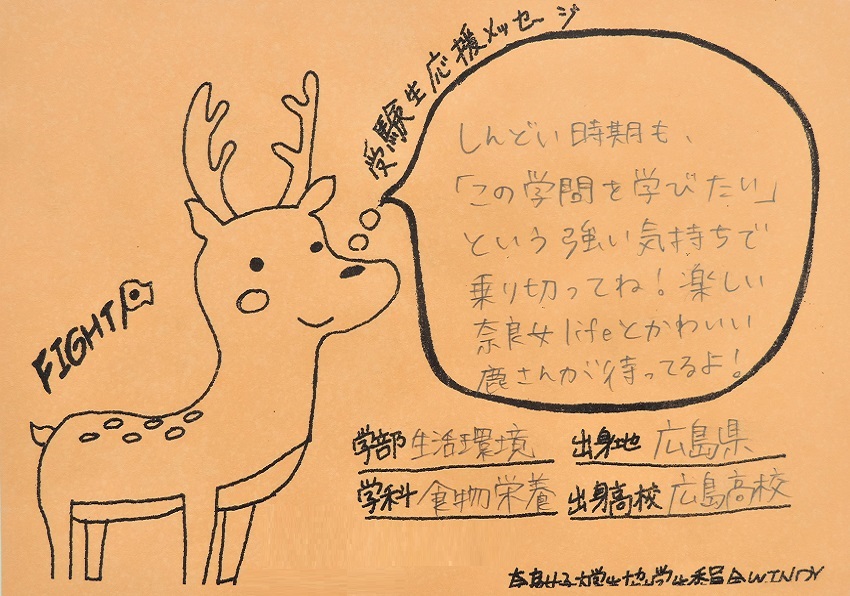 受験生応援メッセージ
しんどい時期も、
「この学問を学びたい」
という強い気持ちで
乗り切ってね!楽しい
奈良女lifeとかわいい
鹿さんが待ってるよ!
FIGHT
学部 生活環境 出身地 広島県
学科 食物栄養 出身高校 広島高校
奈良女子大学生協学生委員会WINDY